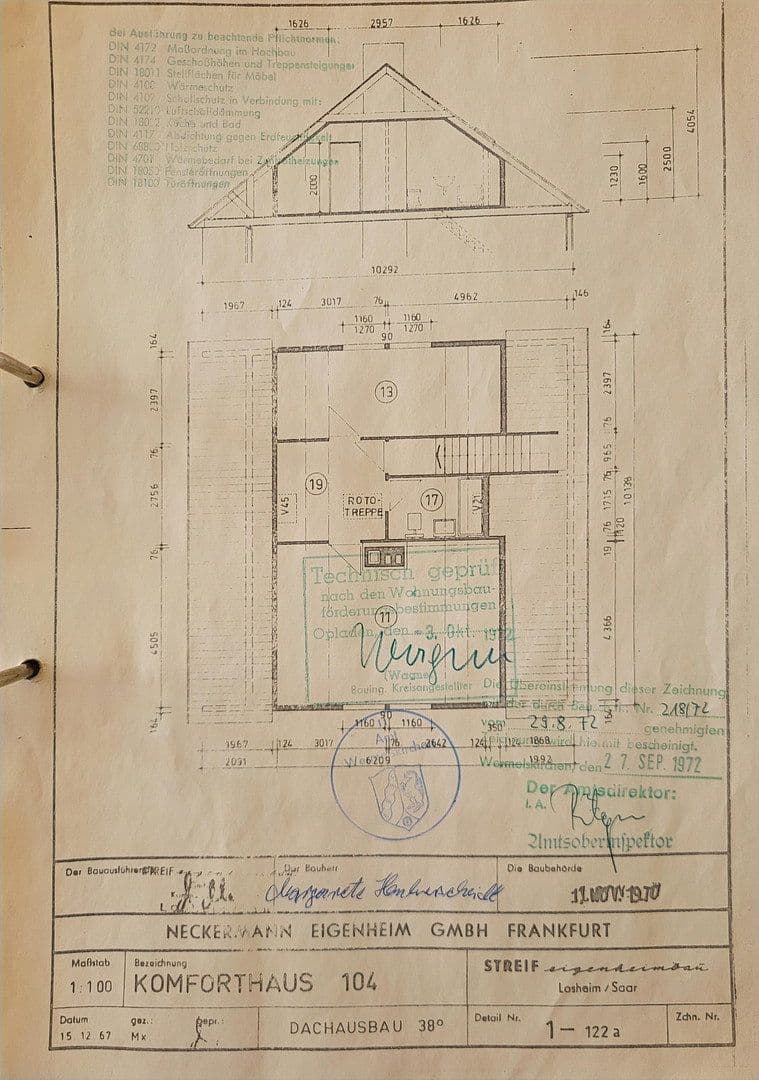 1626 2957 1626
Bei Ausführung zu beachtende Pflichtnormen:
DIN 4172 Maßordnung im Hochbau
DIN 4174 Geschoßhöhen und Treppensteigungen
DIN 18011 Stellflächen für Möbel
DIN 4108 Wärmeschutz
DIN 4109 Schallschutz in Verbindung mit:
DIN 52210 Luftschalldämmung
DIN 18022 Küche und Bad
DIN 4117 Abdichtung gegen Erdfeuchtigkeit
DIN 68800 Holzschutz
DIN 4701 Wärmebedarf bei Zentralheizungen
DIN 18050 Fensteröffnungen
DIN 18100 Türöffnungen
2000
1230 1600 2500 4054
10292
1967 124 3017 76 4962 146
1160 1160
1270 1270
90
164 2397 76 2756 76 4505 164
13
19
17
ROTO-
TREPPE
V45
V21
11
164 2397 76 965 76 1715 76 19 4366 164
120
10136
Technisch geprüft
nach den Wohnungsbau-
förderungsbestimmungen
Opladen, den -3. Okt. 1972
(Wagner)
Bauing. Kreisangestellter
Die Übereinstimmung dieser Zeichnung
Nr. 218/72
vom 29.8.72 genehmigten
wird hiermit bescheinigt.
Wermelskirchen, den 27. SEP. 1972
Der Amtsdirektor:
I.A.
Amtsoberinspektor
90
1160 1160
1967 124 3017 76 2642 124 124 1868
2091 6209 1992
Amt
Der Bauausführer STREIF
Der Bauherr
Die Baubehörde
Margarete
NECKERMANN EIGENHEIM GMBH FRANKFURT
Maßstab
1:100
Bezeichnung
KOMFORTHAUS 104
STREIF eigenheimbau
Losheim/Saar
Datum
15 12 67
gez.:
Mx
gepr.:
DACHAUSBAU 38°
Detail Nr.
1 – 122 a
Zchn. Nr.